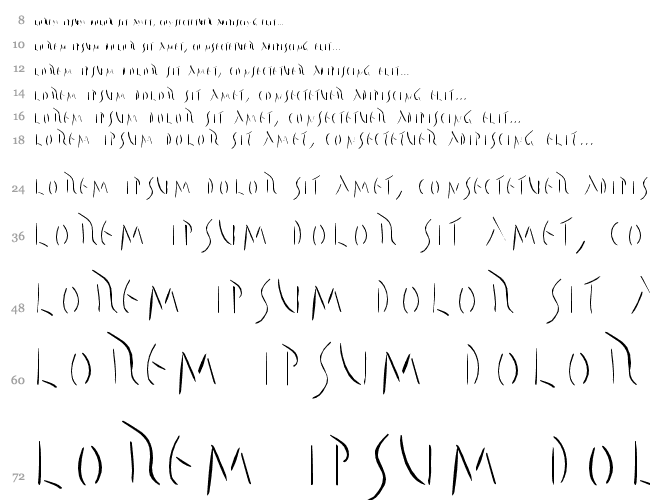 8 LOREM IPSUM DOLOR SIT AMET, CONSECTETUER ADIPISCING ELIT...
10 LOREM IPSUM DOLOR SIT AMET, CONSECTETUER ADIPISCING ELIT...
12 LOREM IPSUM DOLOR SIT AMET, CONSECTETUER ADIPISCING ELIT...
14 LOREM IPSUM DOLOR SIT AMET, CONSECTETUER ADIPISCING ELIT...
16 LOREM IPSUM DOLOR SIT AMET, CONSECTETUER ADIPISCING ELIT...
18 LOREM IPSUM DOLOR SIT AMET, CONSECTETUER ADIPISCING ELIT...
24 LOREM IPSUM DOLOR SIT AMET, CONSECTETUER ADIPIS
36 LOREM IPSUM DOLOR SIT AMET, CO
48 LOREM IPSUM DOLOR SIT A
60 LOREM IPSUM DOLOR
72 LOREM IPSUM DOL